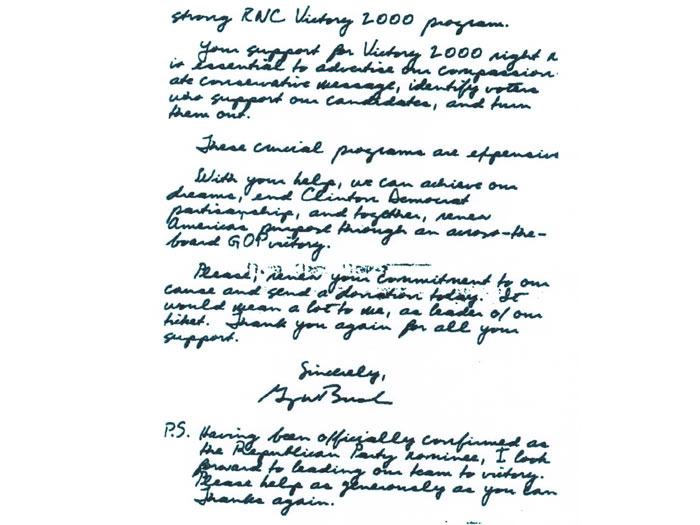 strong RNC Victory 2000 program.
Your support for Victory 2000 right n
is essential to advertise our compassion-
ate conservative message, identify voters
who support our candidates, and turn
them out.
These crucial programs are expensiv
With your help, we can achieve our
dreams, end Clinton Democrat
partisanship, and together, renew
America's purpose through an across-the-
board GOP victory.
Please, renew your commitment to our
cause and send a donation today. It
would mean a lot to me, as leader of our
ticket. Thank you again for all your
support.
Sincerely,
George W Bush
P.S. Having been officially confirmed as
the Republican Party nominee, I look
forward to leading our team to victory.
Please help as generously as you can
Thanks again.